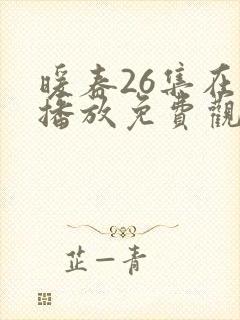 暖春26集在
播放免費觀
芷一青